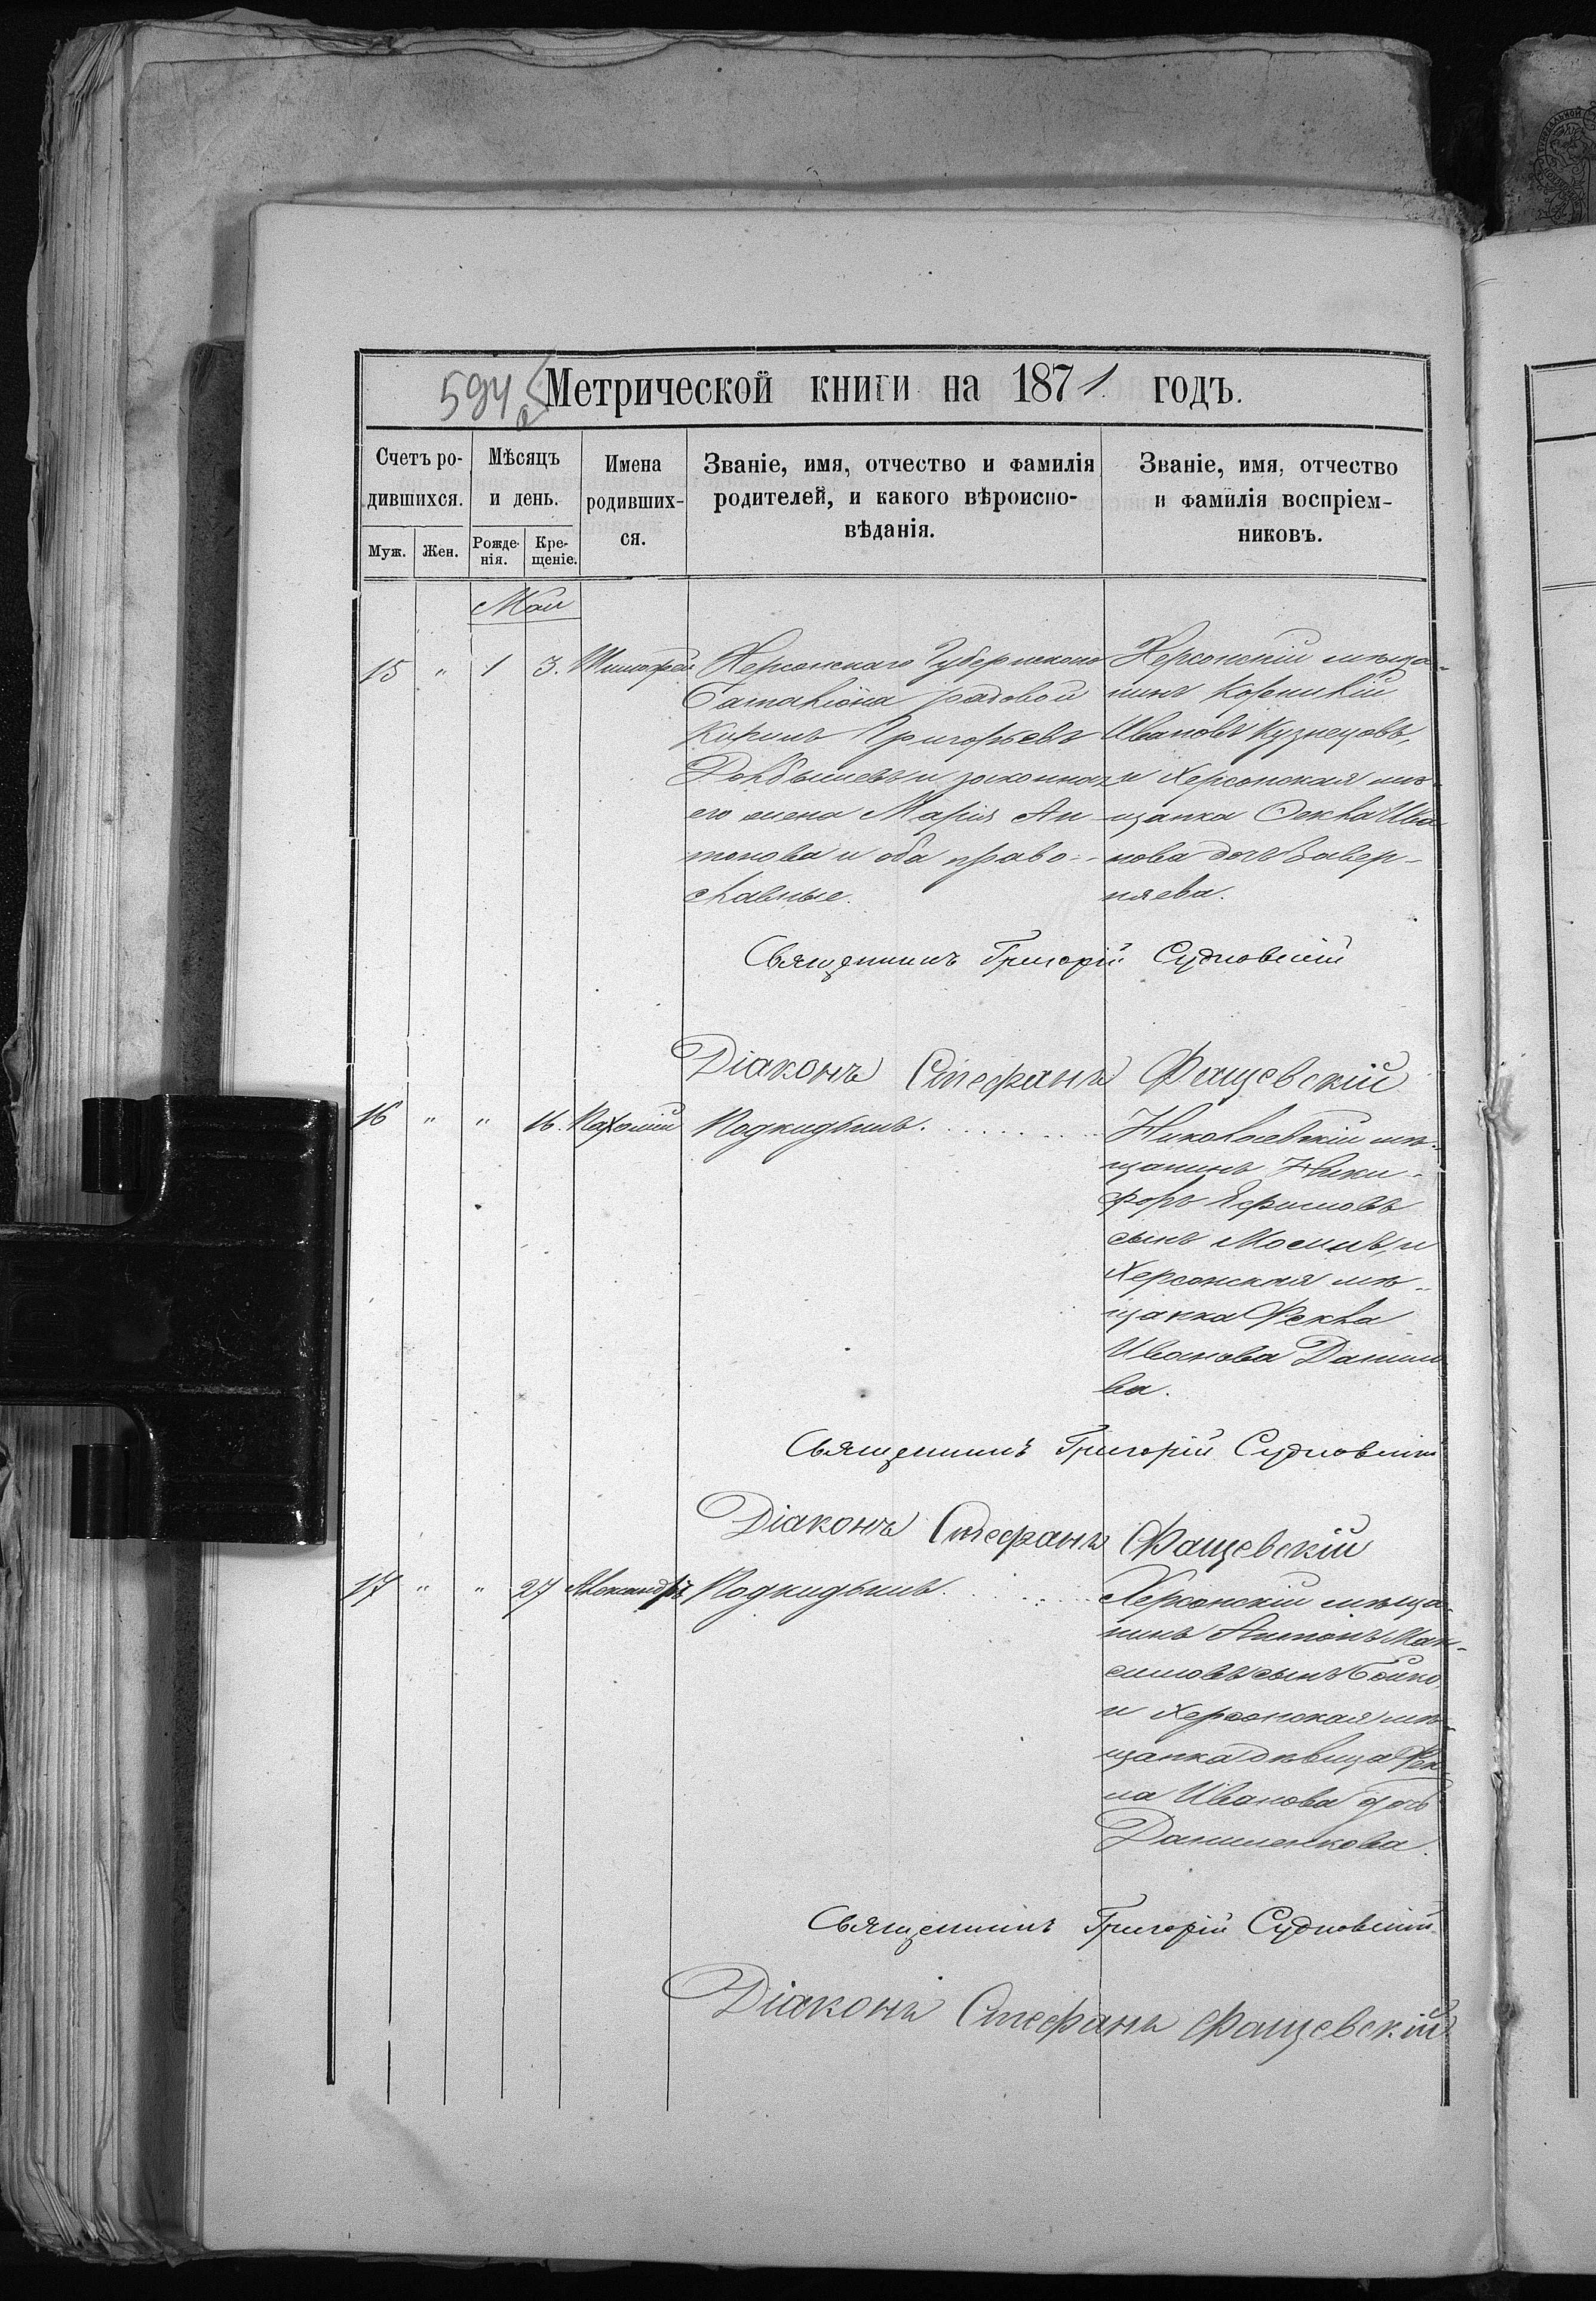 594
Метрической книги на 1871 годъ.
Счетъ ро-
дившихся.
Муж. Жен.
Мѣсяцъ
и день.
Рожде-
нія.
Кре-
щеніе.
Имена
родивших-
ся.
Званіе, имя, отчество и фамилія
родителей, и какого вѣроиспо-
вѣданія.
Званіе, имя, отчество
и фамилія воспріем-
никовъ.
Маи
15 " 1 3. Тимофей
Херсонскаго Губернскаго
Баталіона рядовой
Кирилъ Григорьевъ
и законная
его жена Марія Ан-
тонова и оба право-
славные.
Херсонскій мѣща-
нинъ Корнилій
Ивановъ Кузнецовъ,
и Херсонская мѣ-
щанка Өекла Ива
нова дочь Завер-
няева.
Священникъ Григорій Судковскій
Діаконъ Стефанъ Фащевскій
16 " " 16. Пахомій Подкидышъ.
Николаевскій мѣ-
щанинъ Ники-
форъ Ефимовъ
сынъ и
Херсонская мѣ-
щанка Фекла
Иванова Данило
ва.
Священникъ Григорій Судковскій
Діаконъ Стефанъ Фащевскій
17 " " 27 Александръ Подкидышъ.
Херсонскій мѣща-
нинъ Антонъ Мак-
симовъ сынъ Бойко
и Херсонская мѣ-
щанка дѣвица Фек-
ла Иванова дочь
Даниленкова.
Священникъ Григорій Судковскій
Діаконъ Стефанъ Фащевскій